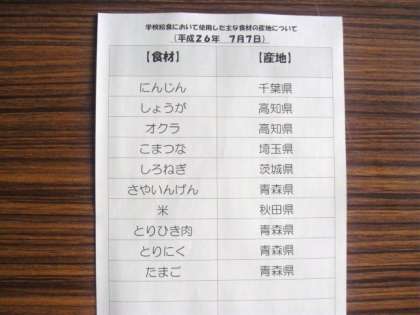 学校給食において使用した主な食材の産地について
(平成26年 7月7日)
【食材】 【産地】
にんじん 千葉県
しょうが 高知県
オクラ 高知県
こまつな 埼玉県
しろねぎ 茨城県
さやいんげん 青森県
米 秋田県
とりひき肉 青森県
とりにく 青森県
たまご 青森県